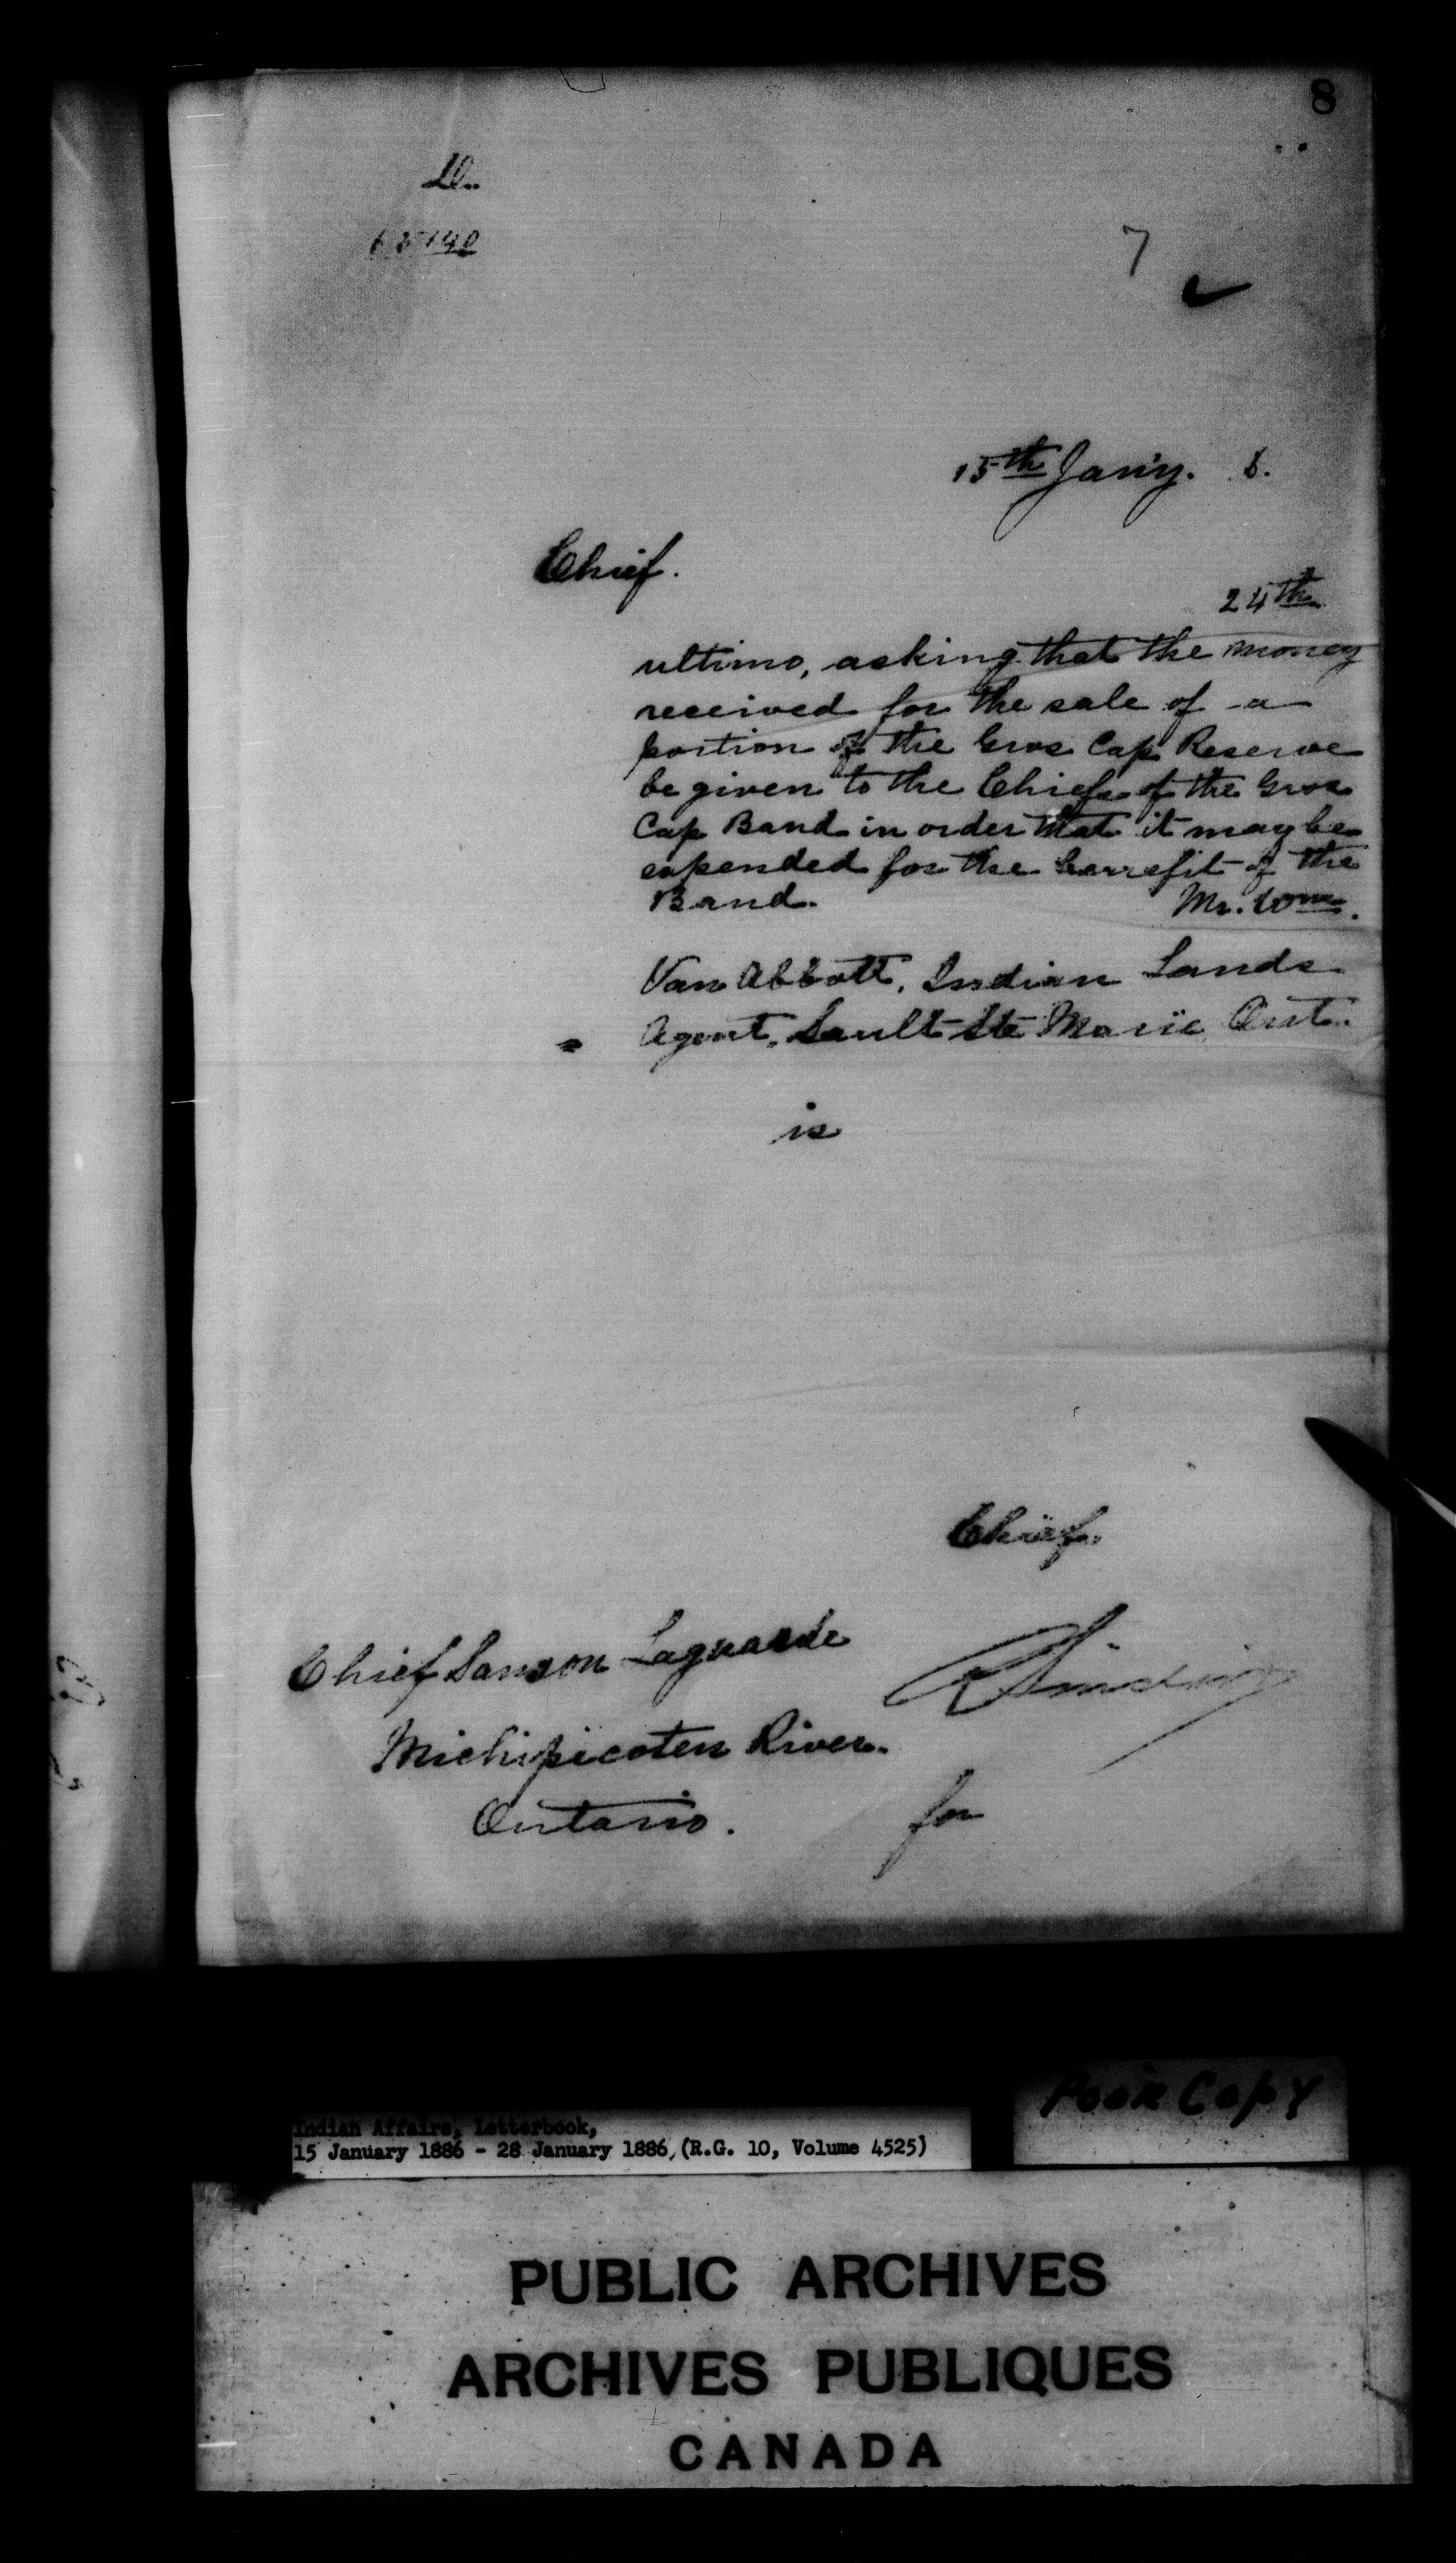 8
D.
7
15th Jan'y. 6.
Chief.
24th
ultimo, asking that the money
received for the sale of a
portion of the Gros Cap Reserve
be given to the Chiefs of the Gros
Cap Band in order that it may be
expended for the benefit of the
Band. Mr. Wm.
Van Abbott, Indian Lands
Agent, Sault Ste Marie Ont.
is
Chief.
Chief Samson Laguarde
Michipicoten River.
Ontario.
for
Poor Copy
Indian Affairs, Letterbook,
15 January 1886 - 28 January 1886, (R.G. 10, Volume 4525)
PUBLIC ARCHIVES
ARCHIVES PUBLIQUES
CANADA